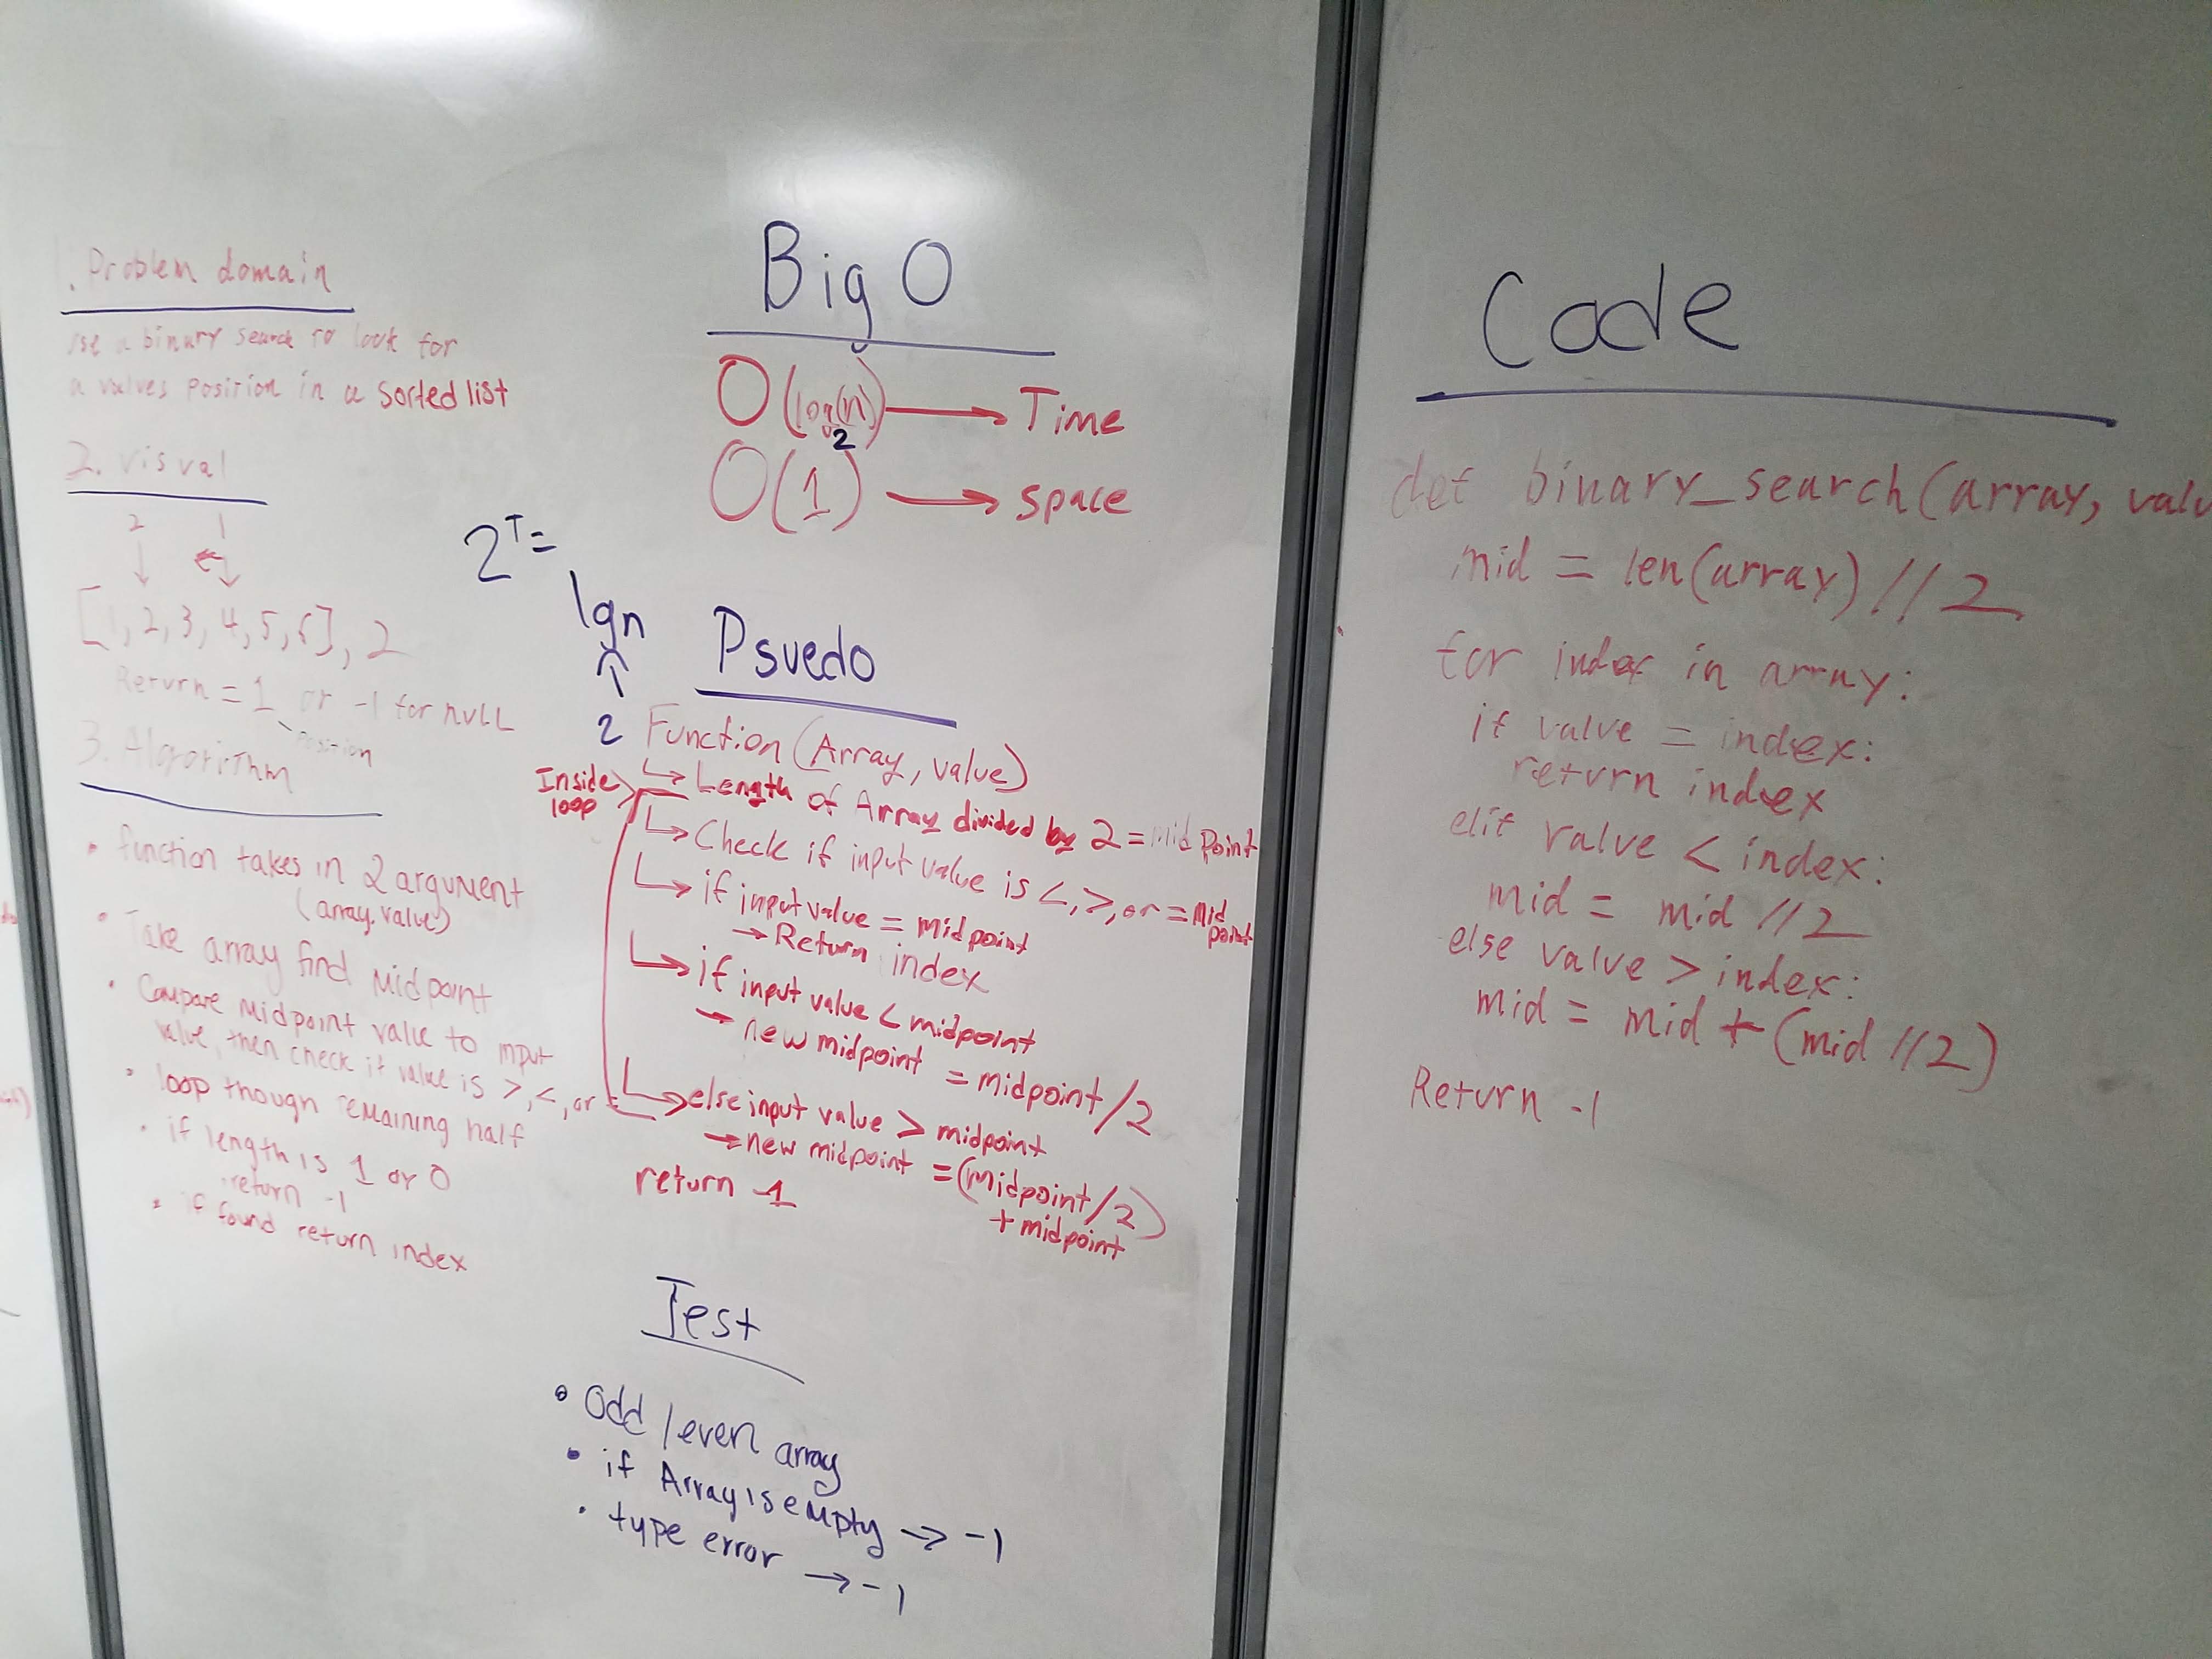 1. Problem domain
use a binary search to look for
a values position in a sorted list
2. visual
2 1
[1, 2, 3, 4, 5, 6], 2
Return = 1 or -1 for null
position
3. Algorithm
• function takes in 2 argument
(array, value)
• Take array find midpoint
• Compare midpoint value to input
value, then check if value is >, <, or =
• loop though remaining half
• if length is 1 or 0
return -1
• if found return index
Big O
O(log(n)) → Time
2
O(1) → space
2^T =
lgn
2
Psuedo
Function (Array, value)
Inside
loop
↳ Length of Array divided by 2 = mid point
↳ Check if input value is <, >, or = mid
point
↳ if input value = midpoint
→ Return index
↳ if input value < midpoint
→ new midpoint = midpoint/2
↳ else input value > midpoint
→ new midpoint = (midpoint/2)
+ midpoint
return -1
Test
• Odd / even array
• if Array is empty → -1
• type error → -1
Code
def binary_search(array, valu
mid = len(array) // 2
for index in array:
if value = index:
return index
elif value < index:
mid = mid // 2
else value > index:
mid = mid + (mid // 2)
Return -1